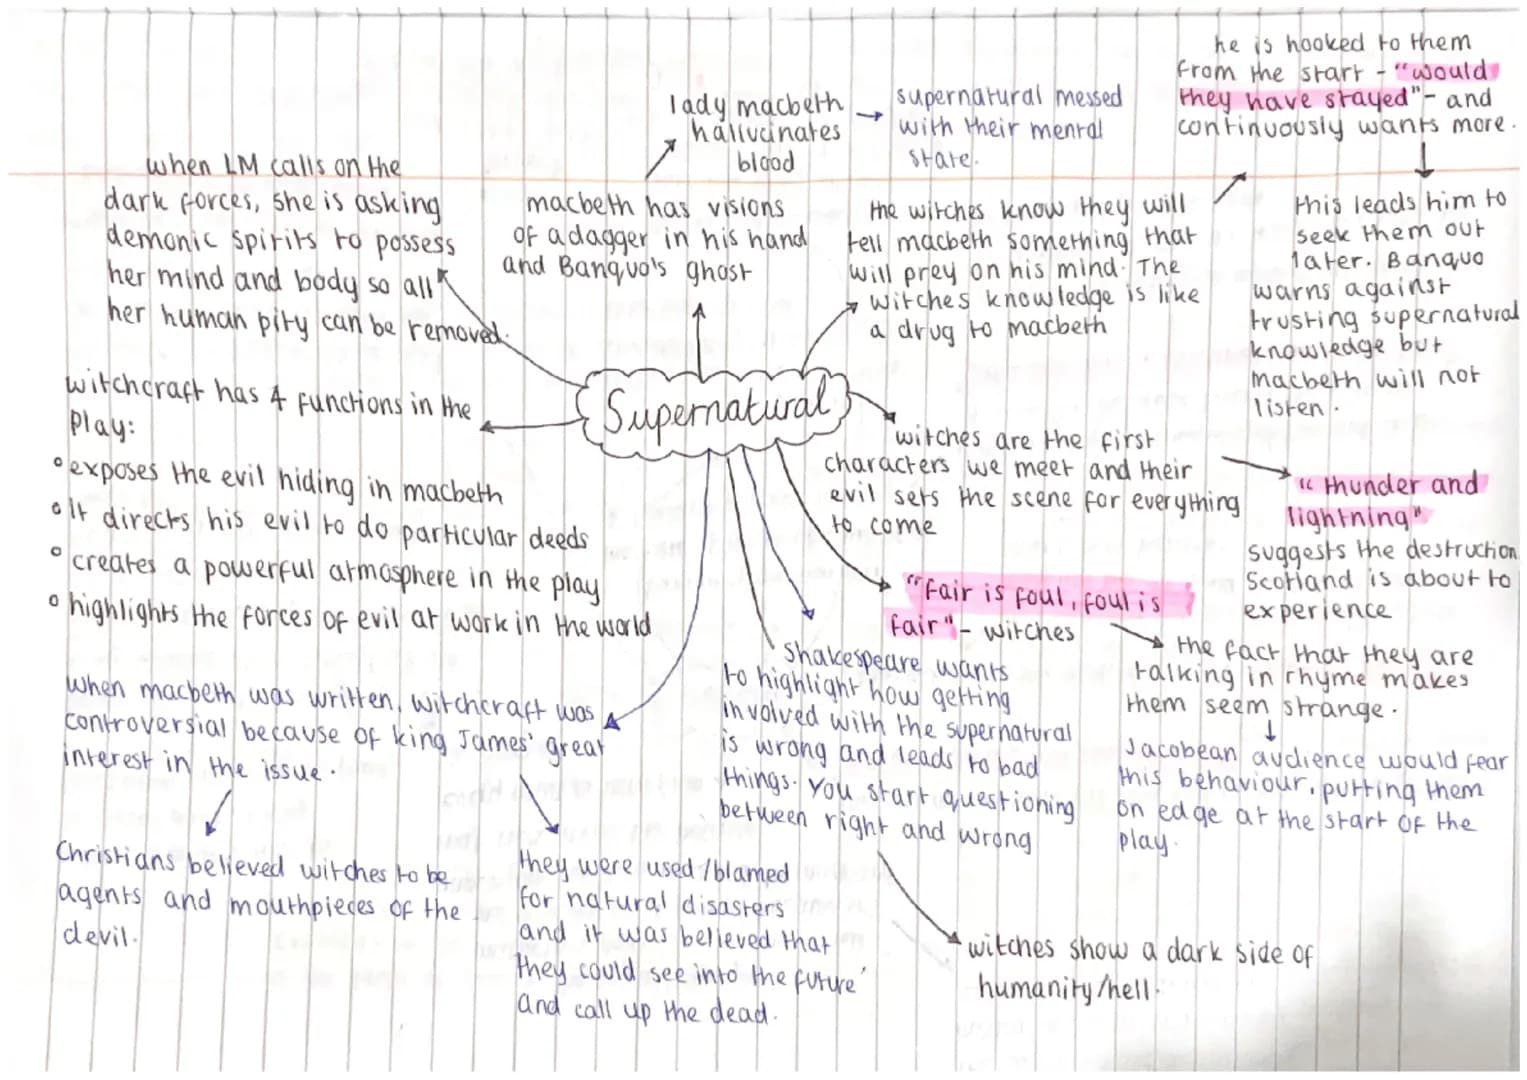 Supernatural
when LM calls on the
dark forces, she is asking
demonic spirits to possess
her mind and body so all
her human pity can be removed.
lady macbeth
hallucinates
blood
supernatural messed
with their mental
state.
macbeth has visions
of a dagger in his hand
and Banquo's ghost
the witches know they will
tell macbeth something that
will prey on his mind. The
witches knowledge is like
a drug to macbeth
he is hooked to them
from the start - "would
they have stayed" - and
continuously wants more.
this leads him to
seek them out
later. Banquo
warns against
trusting supernatural
knowledge but
Macbeth will not
listen.
witchcraft has 4 functions in the
Play:
exposes the evil hiding in macbeth
it directs his evil to do particular deeds
creates a powerful atmosphere in the play
highlights the forces of evil at work in the world
witches are the first
characters we meet and their
evil sets the scene for everything
to come
"thunder and
lightning"
suggests the destruction
Scotland is about to
experience
"fair is foul, foul is
fair" - witches
the fact that they are
talking in rhyme makes
them seem strange.
Jacobean audience would fear
this behaviour, putting them
on edge at the start of the
play.
Shakespeare wants
to highlight how getting
involved with the supernatural
is wrong and leads to bad
things. You start questioning
between right and wrong
witches show a dark side of
humanity/hell.
when macbeth was written, witchcraft was
controversial because of king James' great
interest in the issue.
Christians believed witches to be
agents and mouthpieces of the
devil.
they were used/blamed
for natural disasters
and it was believed that
they could see into the future
and call up the dead.